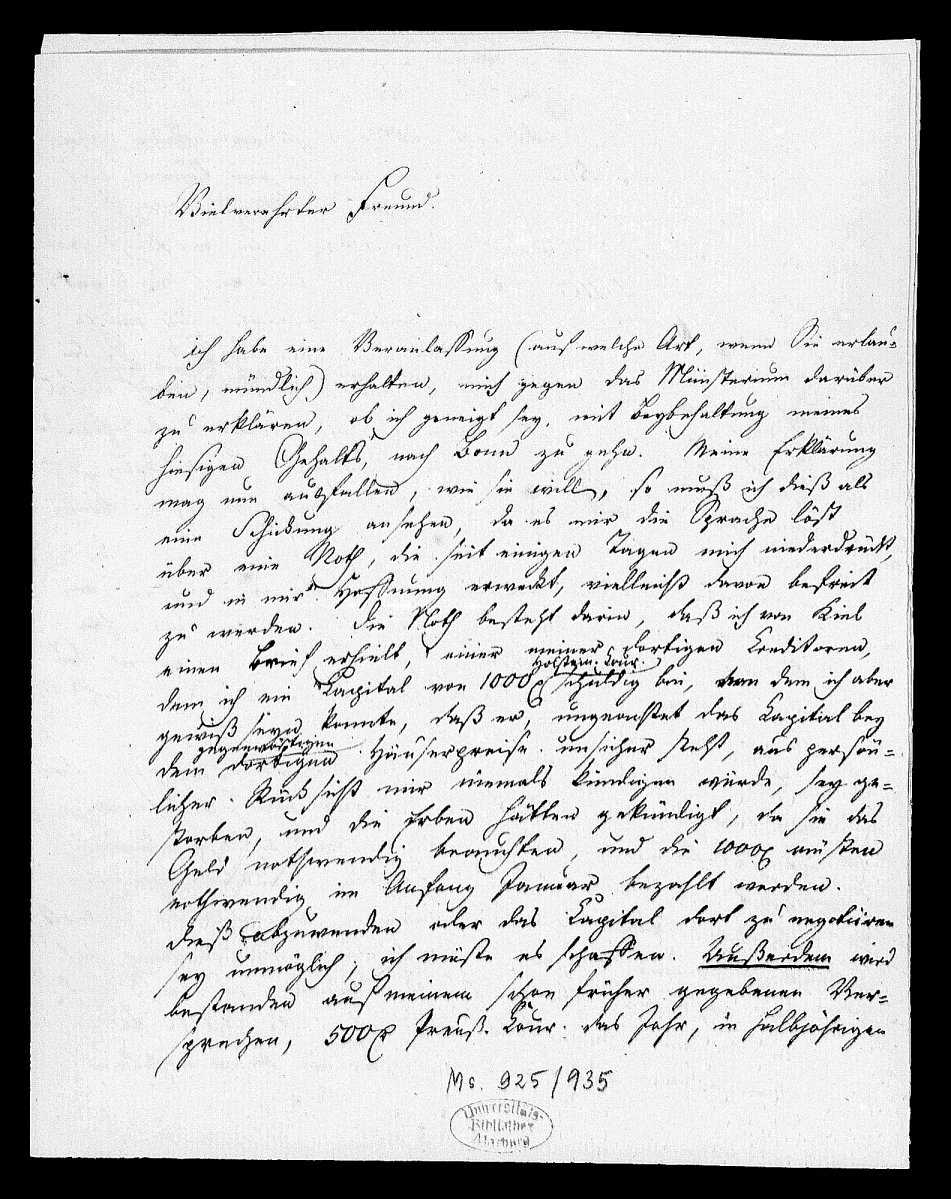 Vielverehrter Freund.
ich habe eine Veranlassung (auf welche Art, wenn Sie erlau-
ben, mündlich) erhalten, mich gegen das Ministerium darüber
zu erklären, ob ich geneigt sey, mit Beybehaltung meines
hiesigen Gehalts, nach Bonn zu gehn. Meine Erklärung
mag nun ausfallen, wie sie will, so muß ich dieß als
eine Schickung ansehen, da es mir die Sprache löst
über eine Noth, die seit einigen Tagen mich niederdrückt,
und in mir Hoffnung erweckt, vielleicht davon befreit
zu werden. Die Noth besteht darin, daß ich von Kiel
einen Brief erhielt, einer meiner dortigen Creditoren,
Holstein. Cour.
dem ich ein Capital von 1000 schuldig bin, von dem ich aber
gewiß seyn konnte, daß er, ungeachtet das Capital bey
gegenwärtigen
dem dortigen Häuserpreise unsicher steht, aus persön-
licher Rücksicht mir niemals kündigen würde, sey ge-
storben, und die Erben hätten gekündigt, da sie das
Geld nothwendig brauchten, und die 1000 müßten
nothwendig im Anfang Januar bezahlt werden.
dieß abzuwenden oder das Capital dort zu negotiiren
sey unmöglich; ich müßte es schaffen. Außerdem wird
bestanden auf meinem schon früher gegebenen Ver-
sprechen, 500 Preuß. Cour. das Jahr, in halbjährigen
Ms. 925/935
Universitäts-
Bibliothek
Marburg